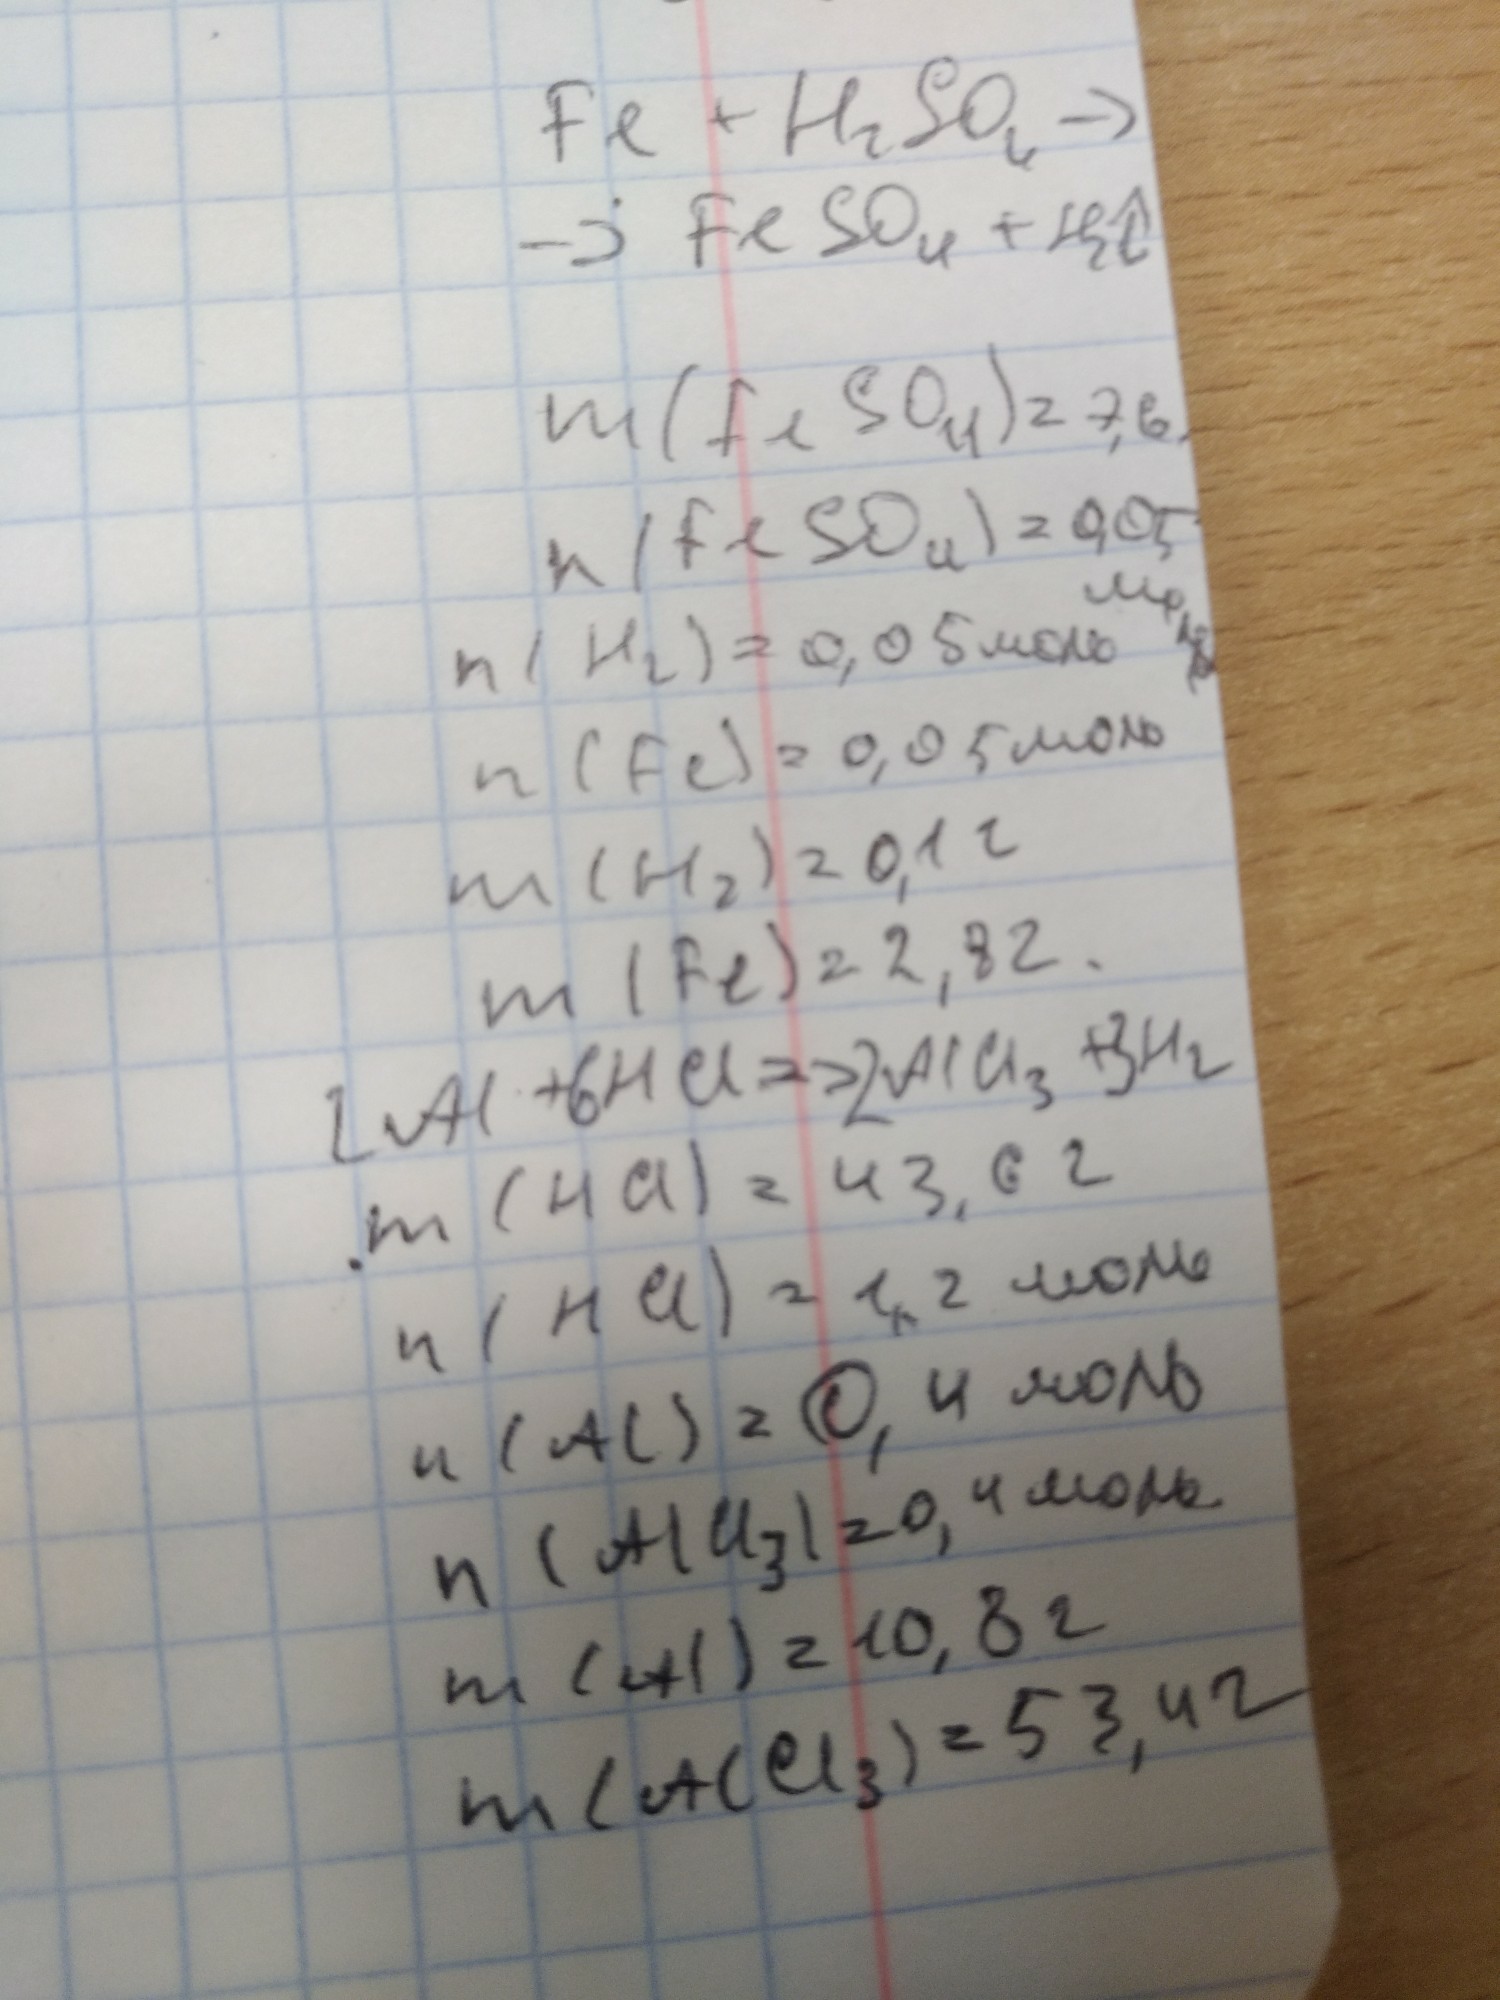 Fe + H₂SO₄ →
→ FeSO₄ + H₂↑
m(FeSO₄) = 7,6
n(FeSO₄) = 0,05
моль
n(H₂) = 0,05 моль
n(Fe) = 0,05 моль
m(H₂) = 0,1 г
m(Fe) = 2,8 г.
2Al + 6HCl => 2AlCl₃ + 3H₂
m(HCl) = 43,6 г
n(HCl) = 1,2 моль
n(Al) = 0,4 моль
n(AlCl₃) = 0,4 моль
m(Al) = 10,8 г
m(AlCl₃) = 53,4 г